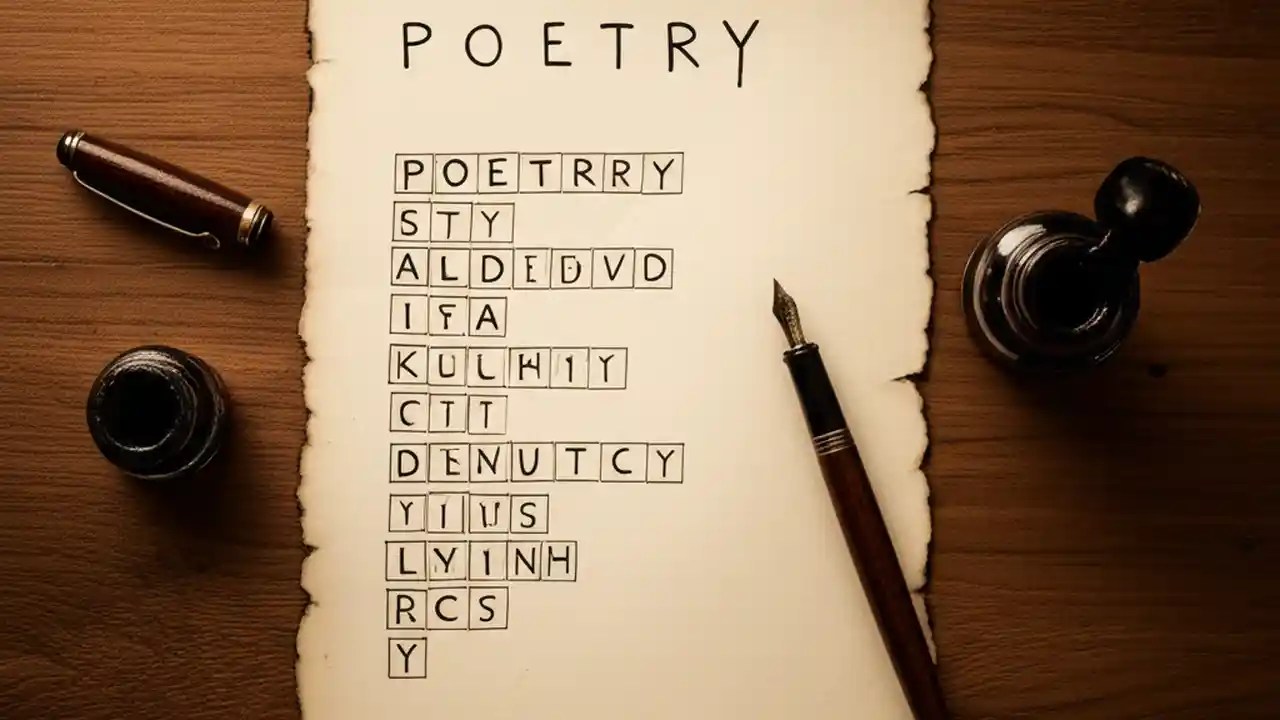 POETRY
POETRRY
STY
ALDEDVD
IFA
KULHIY
CTT
DENUTCY
YIUS
LYINH
RCS
Y